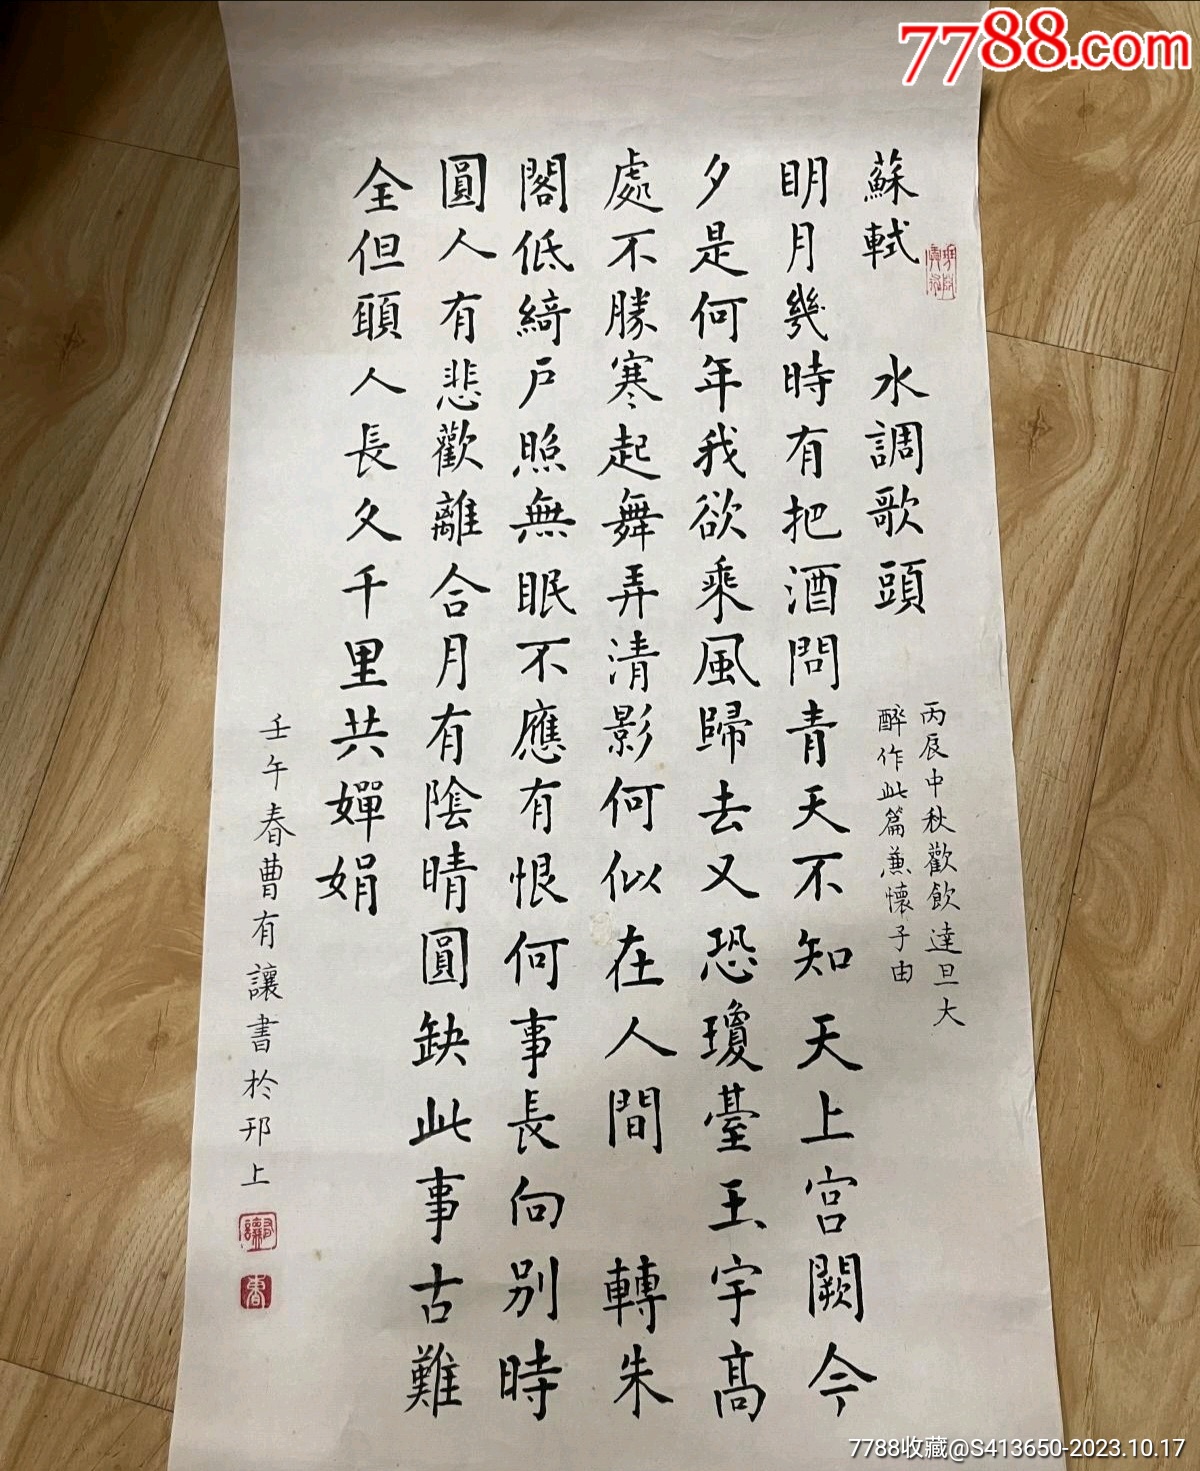 7788.com
蘇軾 水調歌頭
丙辰中秋歡飲達旦大
醉作此篇兼懷子由
明月幾時有把酒問青天不知天上宮闕今
夕是何年我欲乘風歸去又恐瓊臺玉宇高
處不勝寒起舞弄清影何似在人間 轉朱
閣低綺戶照無眠不應有恨何事長向別時
圓人有悲歡離合月有陰晴圓缺此事古難
全但願人長久千里共嬋娟
壬午春曹有讓書於邗上
7788收藏@S413650-2023.10.17